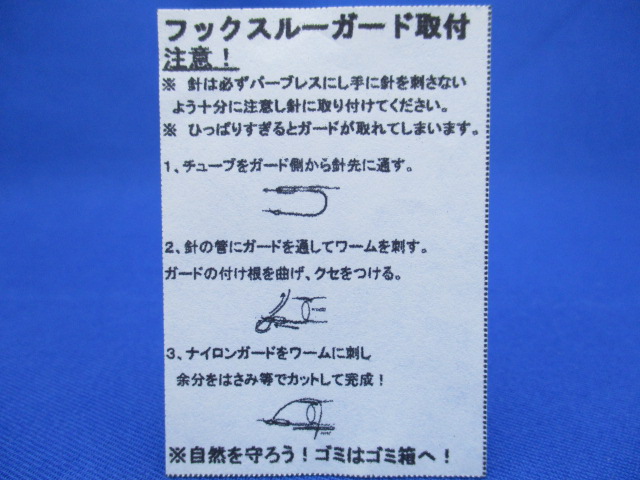 フックスルーガード取付
注意！
※ 針は必ずバーブレスにし手に針を刺さない
よう十分に注意し針に取り付けてください。
※ ひっぱりすぎるとガードが取れてしまいます。
１、チューブをガード側から針先に通す。
２、針の管にガードを通してワームを刺す。
ガードの付け根を曲げ、クセをつける。
３、ナイロンガードをワームに刺し
余分をはさみ等でカットして完成！
※自然を守ろう！ゴミはゴミ箱へ！